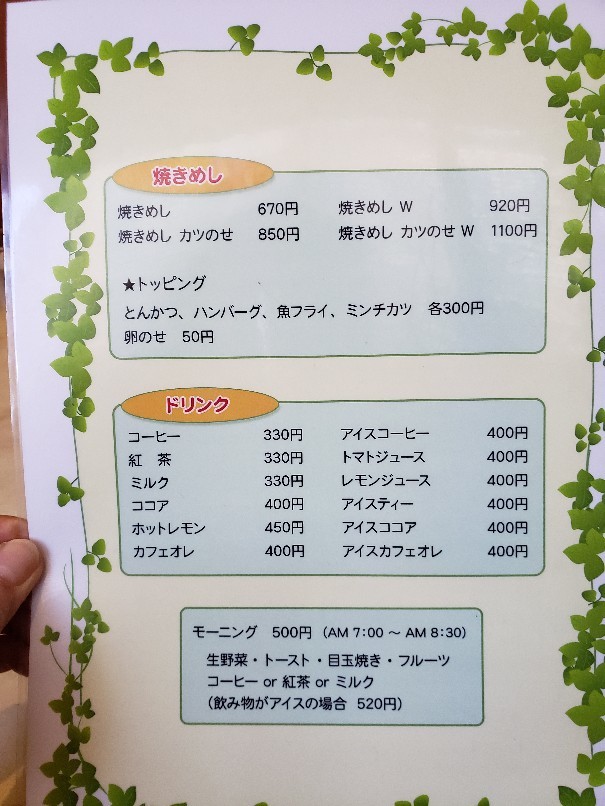 焼きめし
焼きめし 670円 焼きめし W 920円
焼きめし カツのせ 850円 焼きめし カツのせ W 1100円
★トッピング
とんかつ、ハンバーグ、魚フライ、ミンチカツ 各300円
卵のせ 50円
ドリンク
コーヒー 330円 アイスコーヒー 400円
紅 茶 330円 トマトジュース 400円
ミルク 330円 レモンジュース 400円
ココア 400円 アイスティー 400円
ホットレモン 450円 アイスココア 400円
カフェオレ 400円 アイスカフェオレ 400円
モーニング 500円 (AM 7:00 ～ AM 8:30)
生野菜・トースト・目玉焼き・フルーツ
コーヒー or 紅茶 or ミルク
(飲み物がアイスの場合 520円)